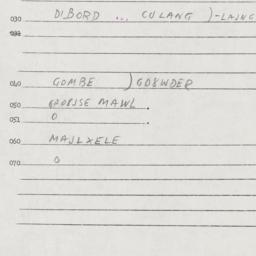 030 DIBORD ... CULANG )-LAING
040 GOMBE )GOXWDER
050 MAWL .
051 0 .
060 MAJLXELE
070 0